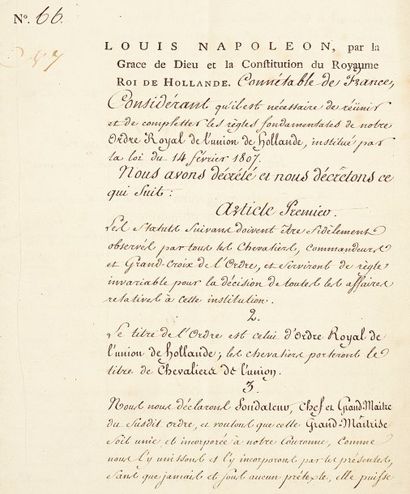 N°. 66.
LOUIS NAPOLEON, par la
Grace de Dieu et la Constitution du Royaume
ROI DE HOLLANDE. Connétable de France,
Considérant qu'il est nécessaire de réunir
et de completter les règles fondamentales de notre
Ordre Royal de l'union de Hollande, institué par
la loi du 14 février 1807.
Nous avons décrété et nous décrétons ce
qui suit:
Article Premier.
Les Statuts Suivans doivent être fidèlement
observés par tous les Chevaliers, commandeurs
et Grand-Croix de l'Ordre, et serviront de règle
invariable pour la décision de toutes les affaires
relatives à cette institution.
2.
Le titre de l'Ordre est celui d'Ordre Royal de
l'union de Hollande; les chevaliers porteront le
titre de Chevaliers de l'union.
3.
Nous nous déclarons Fondateur, Chef et Grand-Maître
du Susdit ordre, et voulons que cette Grand-Maîtrise
soit unie et incorporée à notre Couronne, comme
nous l'y unissons et l'y incorporons par les présentes,
sans que jamais et sous aucun prétexte, elle puisse